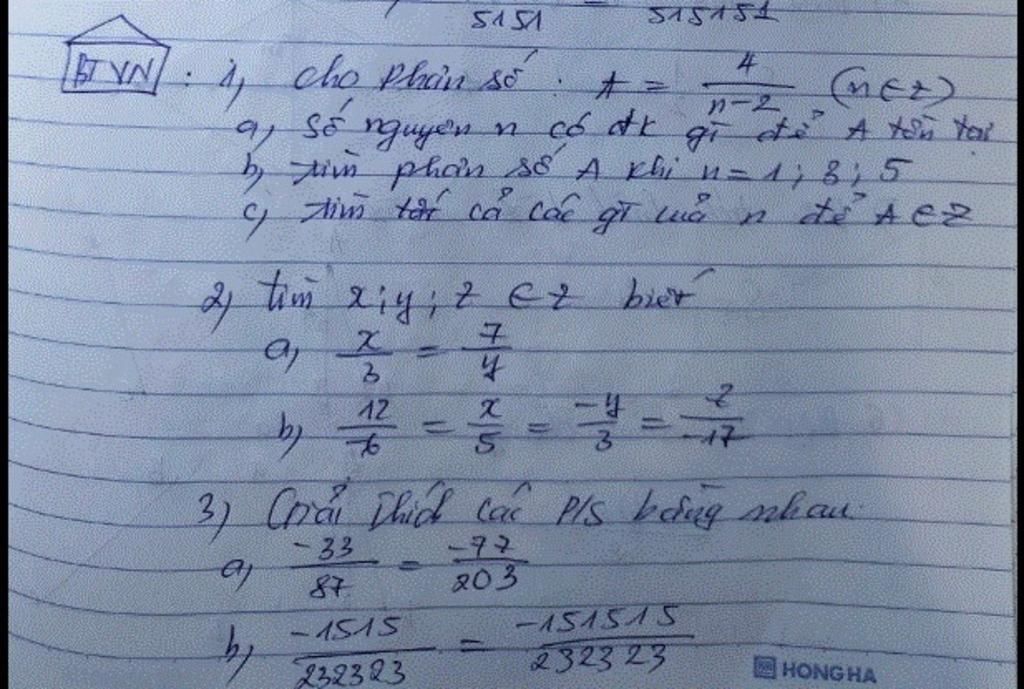 5151 = 515151
BTVN : 1, cho phân số : A = 4/(n-2) (n ∈ Z)
a, Số nguyên n có đk gì để A tồn tại
b, tìm phân số A khi n = 1 ; 3 ; 5
c, tìm tất cả các gt của n để A ∈ Z
2) tìm x ; y ; z ∈ Z biết
a, x/3 = 7/y
b, 12/-6 = x/5 = -y/3 = z/-17
3) Giải thích các P/S bằng nhau
a, -33/87 = -77/203
b, -1515/232323 = -151515/232323
HONG HA